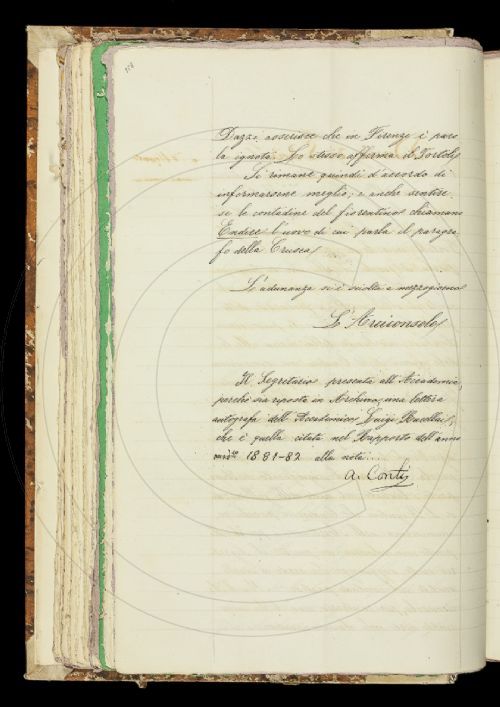 Dazzi asserisce che in Firenze è paro
la ignota. Lo stesso afferma il Tortoli
Si rimane quindi d'accordo di
informarsene meglio, e anche sentire
se le contadine del fiorentino chiamano
Endice l'uovo di cui parla il paragra
fo della Crusca
L'adunanza si è sciolta a mezzogiorno
L'Arciconsolo
Il Segretario presenta all'Accademia,
perchè sia riposta in Archivio, una lettera
autografa dell'Accademico Luigi Rucellai,
che è quella citata nel Rapporto dell'anno
1881-82 alla nota...
A. Conti